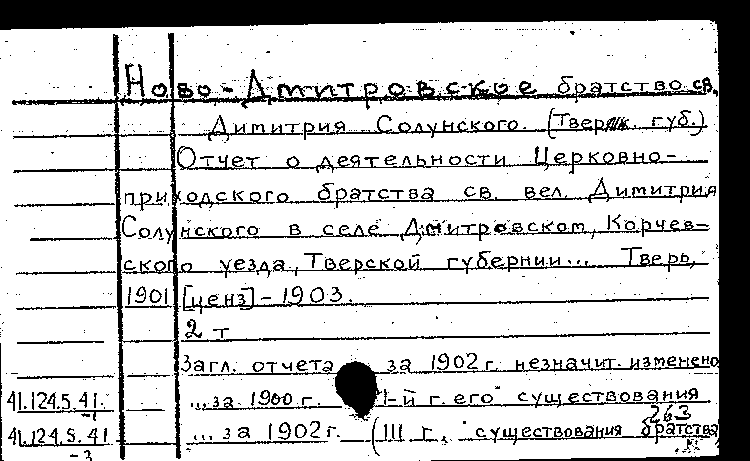 Ново-Дмитровское братство св.
Димитрия Солунского. (Тверск. губ.)
Отчет о деятельности Церковно-
приходского братства св. вел. Димитрия
Солунского в селе Дмитровском, Корчев-
ского уезда, Тверской губернии... Тверь,
1901 [ценз]-1903.
2 т
Загл. отчета за 1902 г. незначит. изменено
41.124.5.41.-1 "...за 1900 г. I-й г. его" существования
263
41.124.5.41-3 "...за 1902 г. (III г. " существования братства